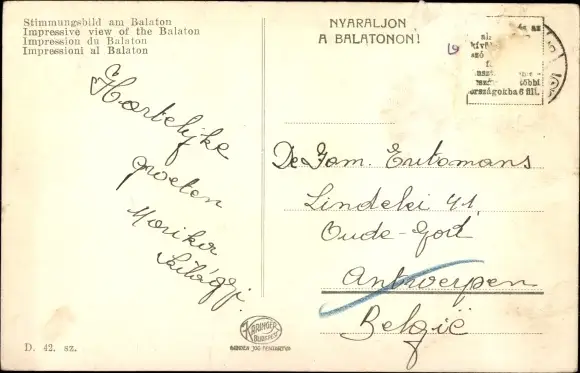 Stimmungsbild am Balaton
Impressive view of the Balaton
Impression du Balaton
Impressioni al Balaton
NYARALJON
A BALATONON!
országokba 6 fill.
Hartelijke
groeten
Monika
Szilágyi.
De Fam. Erutomans
Lindelei 41.
Oude-God
Antwerpen
België
KARINGER
BUDAPEST
D. 42. sz.